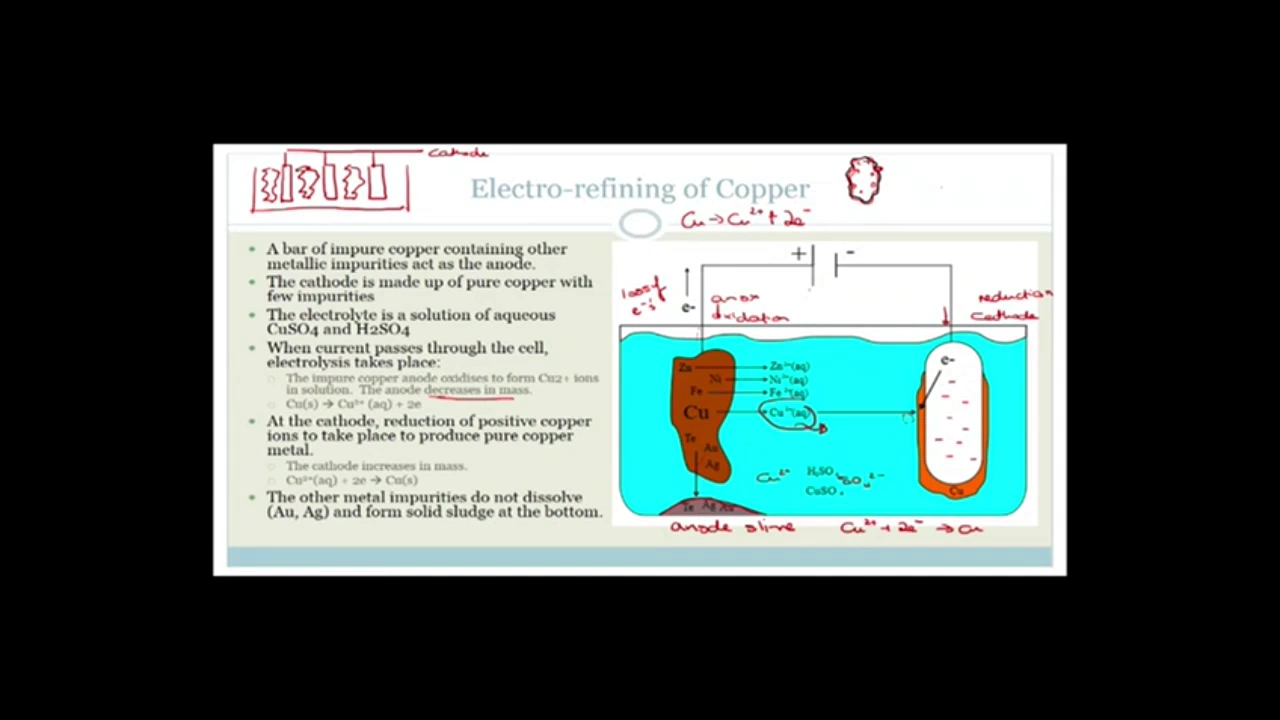 cathode
Electro-refining of Copper
Cu → Cu²⁺ + 2e⁻
• A bar of impure copper containing other
metallic impurities act as the anode.
• The cathode is made up of pure copper with
few impurities
• The electrolyte is a solution of aqueous
CuSO4 and H2SO4
• When current passes through the cell,
electrolysis takes place:
○ The impure copper anode oxidises to form Cu2+ ions
in solution. The anode decreases in mass.
○ Cu(s) → Cu²⁺ (aq) + 2e
• At the cathode, reduction of positive copper
ions to take place to produce pure copper
metal.
○ The cathode increases in mass.
○ Cu²⁺(aq) + 2e → Cu(s)
• The other metal impurities do not dissolve
(Au, Ag) and form solid sludge at the bottom.
+ -
loss of
e⁻'s
e-
anox
oxidation
reduction
cathode
e-
Zn Zn²⁺(aq)
Ni Ni²⁺(aq)
Fe Fe²⁺(aq)
Cu Cu²⁺(aq)
Te
Au
Ag
Cu²⁺ H₂SO₄ SO₄²⁻
CuSO₄
Cu
Te Ag Au
anode slime
Cu²⁺ + 2e⁻ → Cu